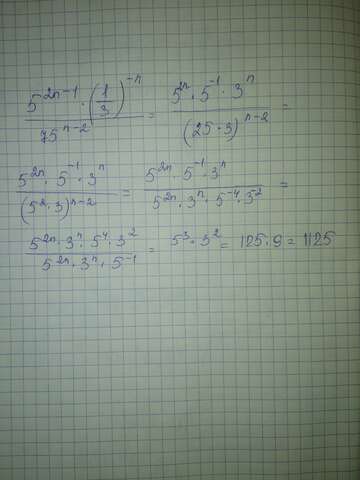 5^{2n-1} · (1/3)^{-n} / 75^{n-2} = 5^{2n} · 5^{-1} · 3^n / (25 · 3)^{n-2} =
5^{2n} · 5^{-1} · 3^n / (5^2 · 3)^{n-2} = 5^{2n} · 5^{-1} · 3^n / 5^{2n} · 3^n · 5^{-4} · 3^2 =
5^{2n} · 3^n · 5^4 · 3^2 / 5^{2n} · 3^n · 5^{-1} = 5^3 · 3^2 = 125 · 9 = 1125